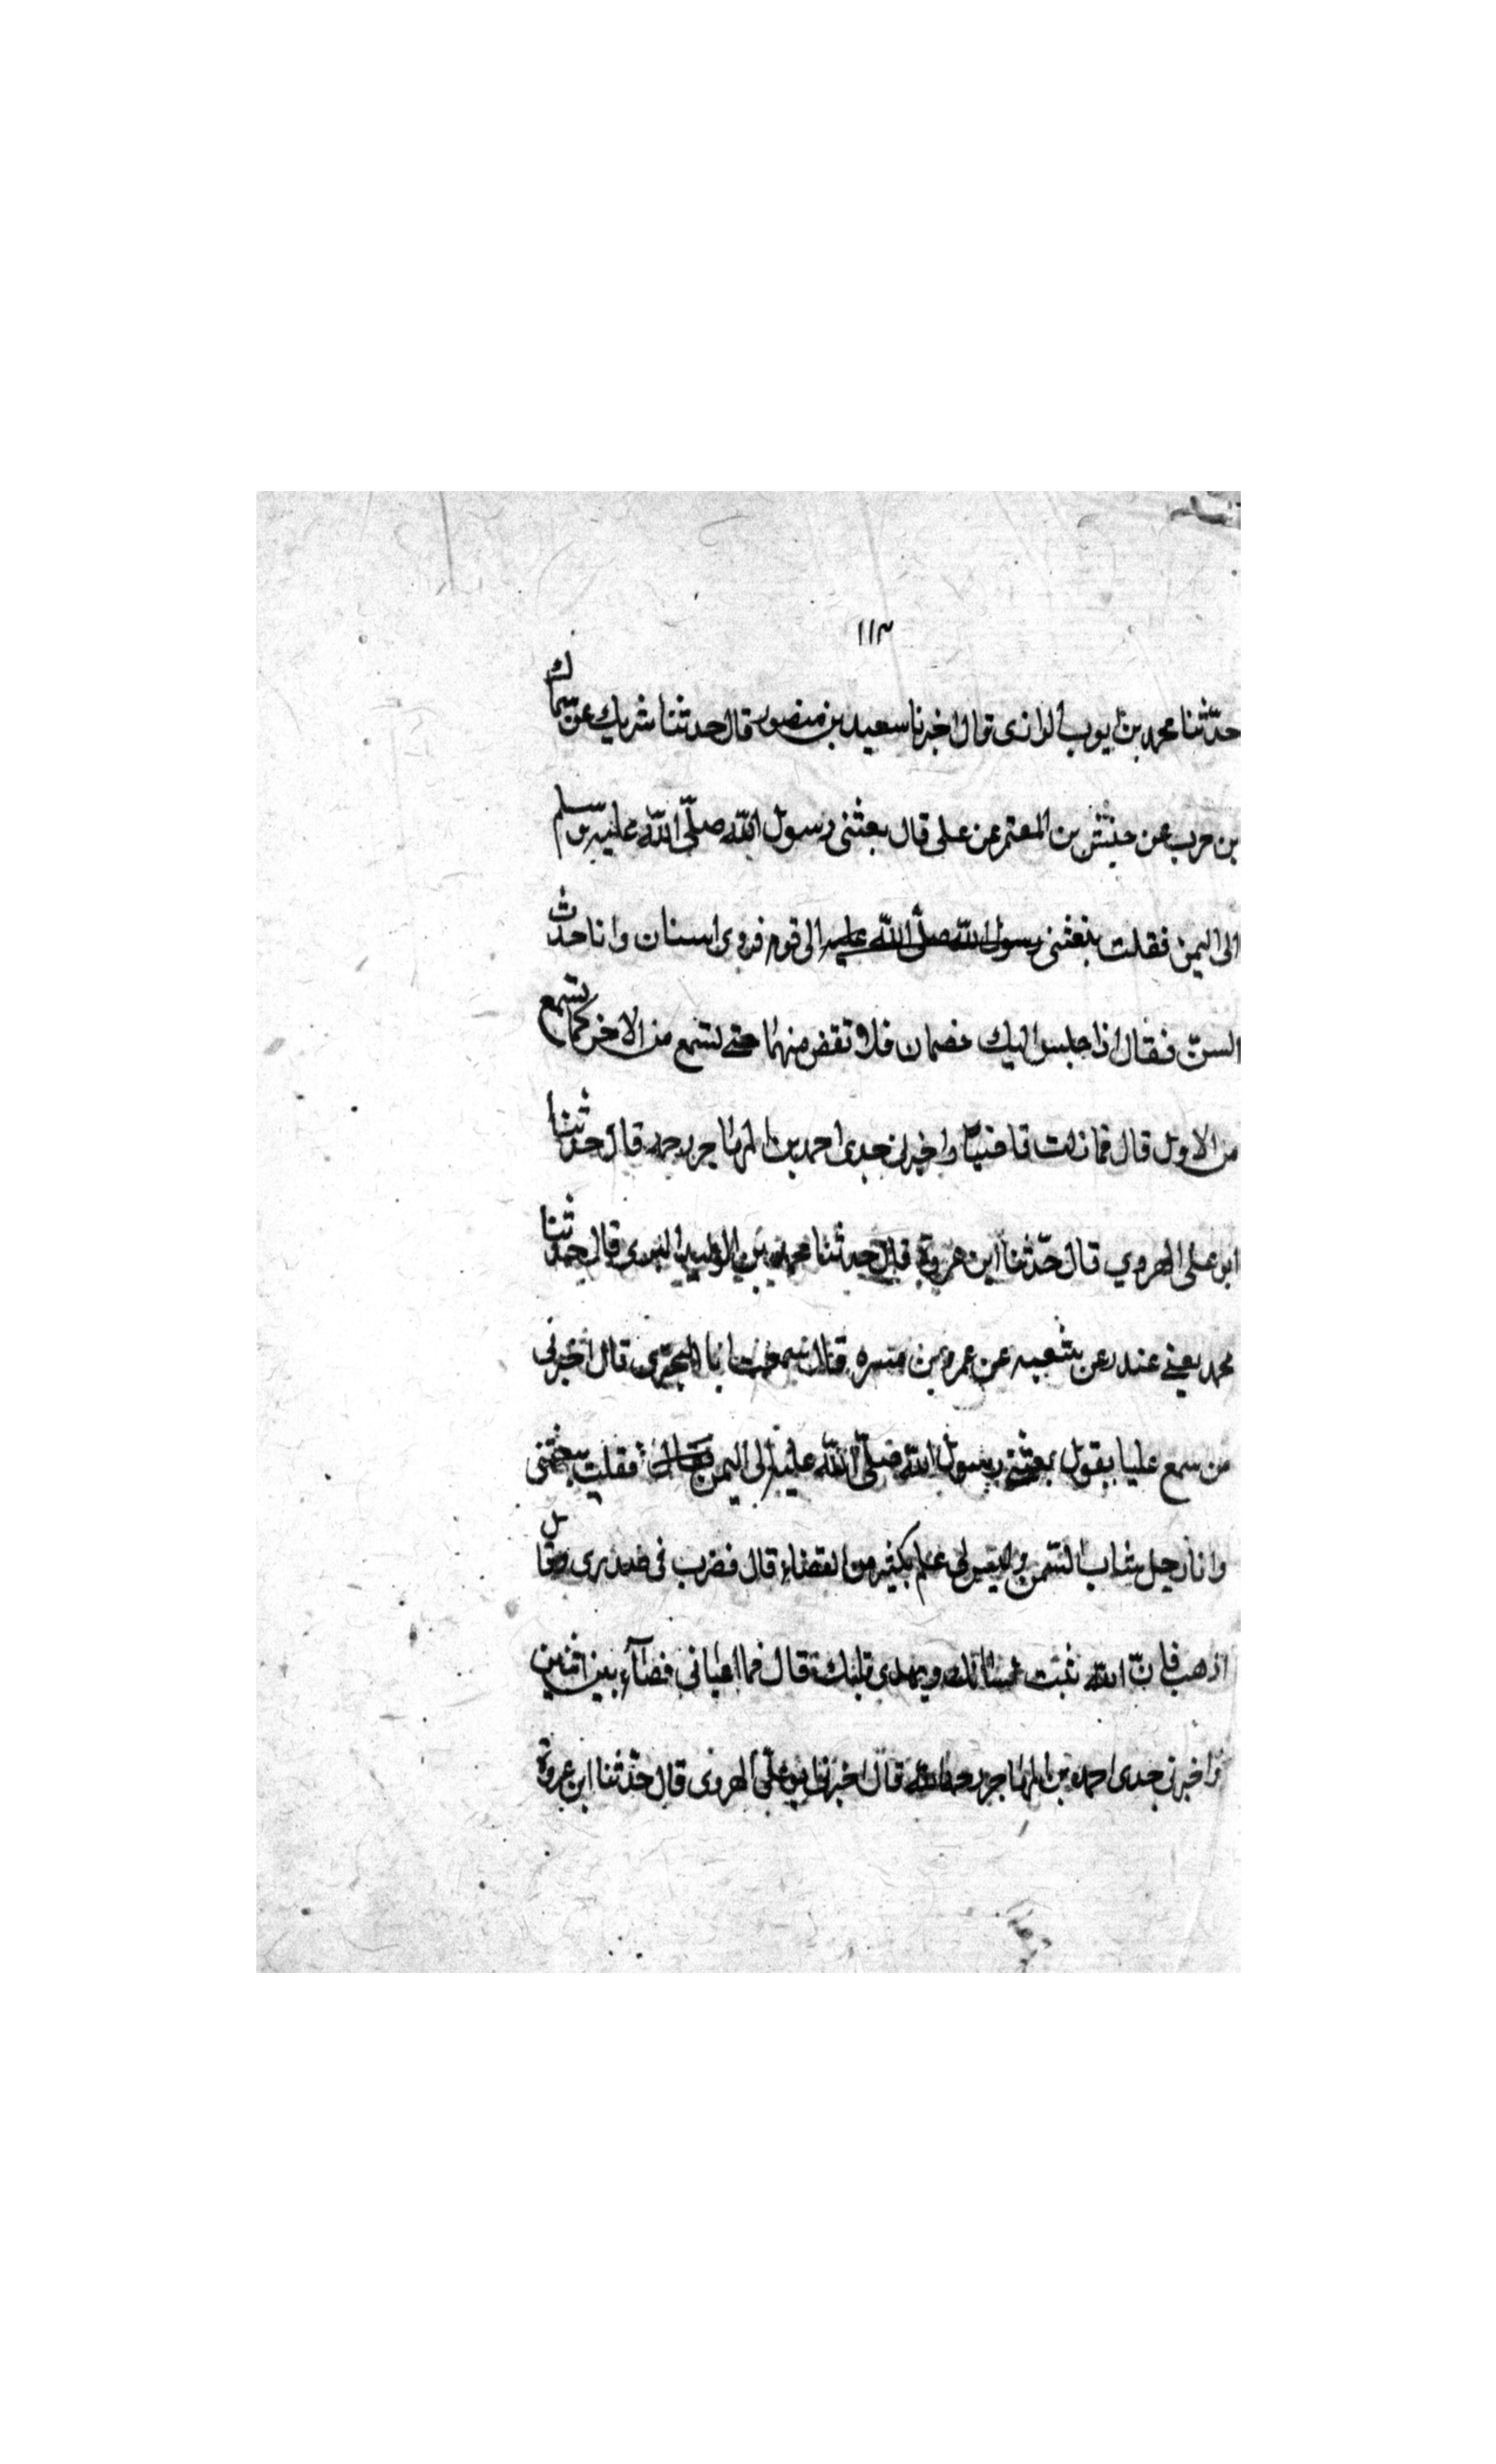 ١١٣
حدّثنا محمد بن ايوب الرازى قال اخبرنا سعيد بن منصور قال حدثنا شريك عن سماك
بن حرب عن حنش بن المعتمر عن على قال بعثنى رسول الله صلّى الله عليه وسلم
الى اليمن فقلت بعثنى رسول الله صلّى الله عليه الى قوم ذوى اسنان وانا حدث
السنّ فقال اذا جلس اليك خصمان فلا تقض منهما حتى تسمع من الاخر كما تسمع
من الاول قال فما زلت قاضيا واخبرنى جدى احمد بن المهاجر رحمه قال حدثنا
ابو على الهروي قال حدّثنا ابن عروة قال حدثنا محمد بن الوليد البسرى قال حدثنا
محمد يعنى غندر عن شعبه عن عمرو بن مره قال سمعت ابا البخترى قال اخبرنى
من سمع عليا يقول بعثنى رسول الله صلّى الله عليه الى اليمن فقلت بعثتنى
وانا رجل شاب السن وليس لى علم بكثير من القضاء قال فضرب فى صدرى وقال
اذهب فان الله يثبت لسانك ويهدى قلبك قال فما اعيانى قضاء بين اثنين
واخبرنى جدى احمد بن المهاجر رحمه الله قال اخبرنا ابو على الهروى قال حدّثنا ابن عروة